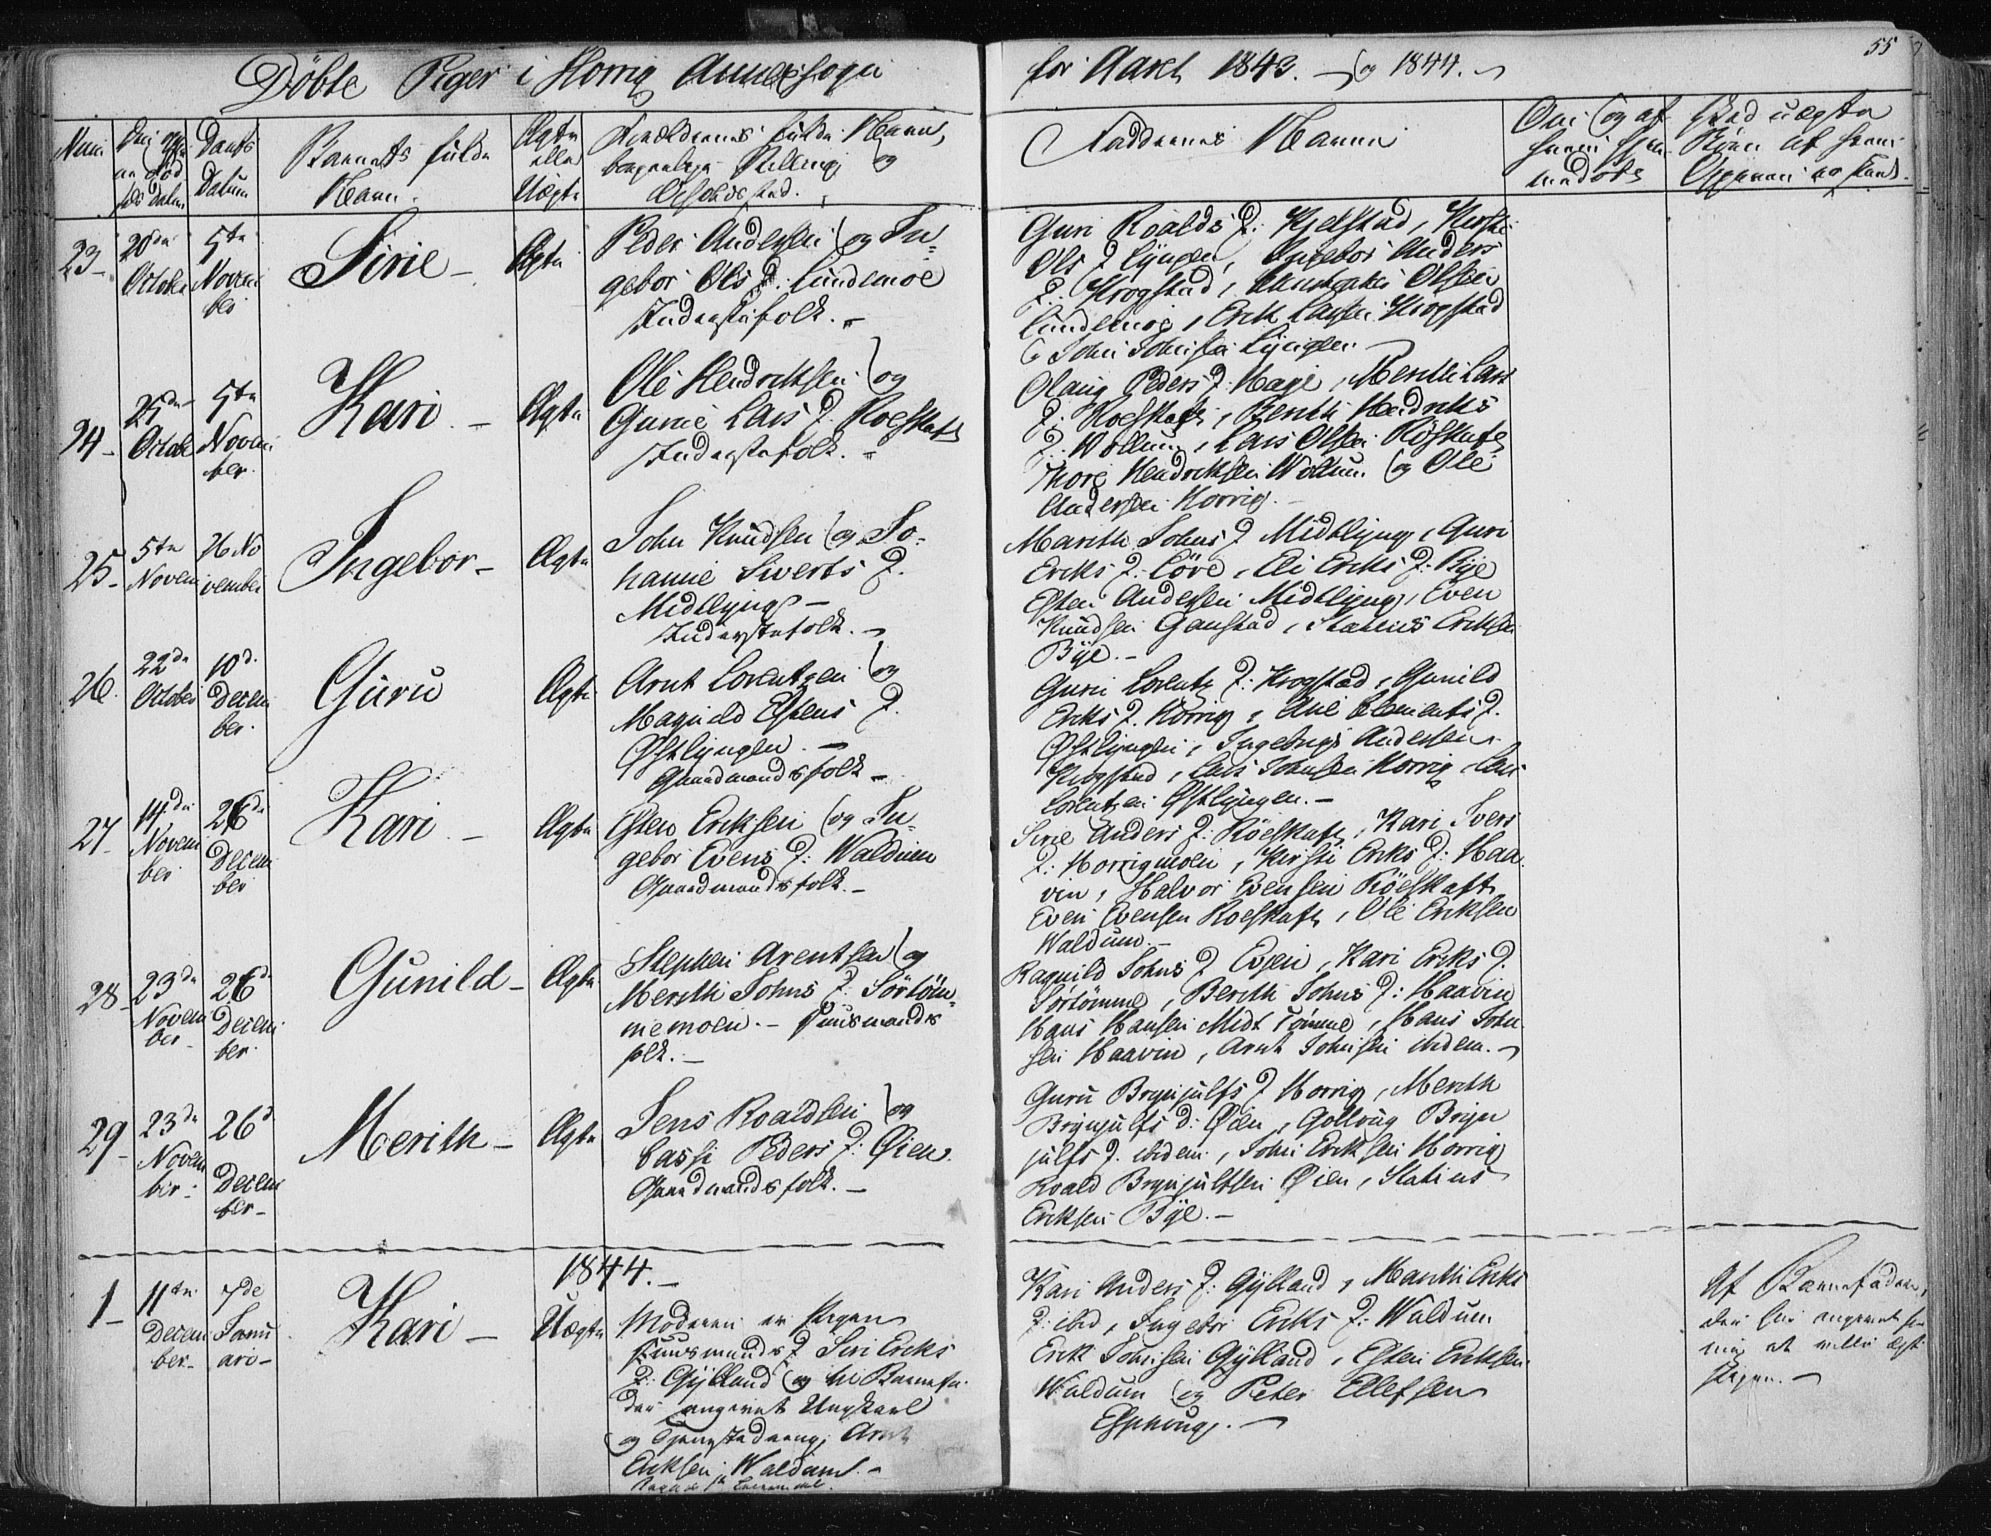 Döbte Piger i Horrig Annexsogn for Aaret 1843. og 1844.
55
Barnets fulde Navn.
Ægte eller Uægte
Forældrenes fulde Navne,
Faddernes Navne
Döbte Datum
23
20de October
5te November
Sirie
Ægte
Peder Andersen og In-
gebor Ols D. Lundemoe
Inderstefolk.
Guri Roalds D: Kjelstad, Kirsti
Ols D Lÿngen, Ingebor Anders
D: Krogstad, Olsen
Lundemoe, Erik Larsen Krogstad
John Johnsen Lyngen
24
October
5te November
Kari
Ægte
Ole Hendriksen og
Gunie Lars D. Roeskaft
Inderstefolk.
Olaug Peders D: Hage, Merith Lars
D: Roeskaft, Berith Hendriks
D: Wollum, Lars Olsen Röskaft
Thore Hendriksen Wollum og Ole
Andersen Horrig.
25
5te Novem
26 November
Ingebor
Ægte
John Knudsen og Jo-
hanne Siverts D.
Midtlyng
Inderstefolk.
Marith Johns D Midtlyng, Guri
Eriks D: Löre, Eli Eriks D: Bÿe
Esten Andersen Midtlyng, Even
Knudsen Gaustad, Statius Eriksen
Bÿe.
26.
22de October
10d. December.
Guru
Ægte
Arnt Lorentzen og
Magnild Estens D.
Østlyngen.
Gaardmandsfolk
Guru Lorentz D: Krogstad, Gunild
Eriks D. Horrig, Ane Clements D.
Østlyngen, Ingebrigt Andersen
Krogstad, Lars Johnsen Horrig, Lars
Lorentzen Østlyngen.
27
14de November
26de December
Kari
Ægte
Esten Eriksen og In-
gebor Evens D: Waldum
Gaardmandsfolk.
Sirie Anders D: Röeskaft, Kari Ivers
D: Horrigmoen, Kirsti Eriks D: Haa-
vin, Halvor Evensen Röeskaft
Even Evensen Roeskaft, Ole Eriksen
Waldum.
28
23de November
26de December.
Gunild
Ægte
Stephen Arentsen og
Merith Johns D: Sörtöm-
memoen. Huusmands
folk.
Ragnild Johns D Evjen, Kari Eriks D.
Sörtömme, Berith Johns D: Haavin
Hans Hansen Midt Tömme, Hans John-
sen Haavin, Arnt Johnsen ibidem.
29
23de November
26d December
Merith
Ægte
Jens Roaldsen og
Cassi Peders D: Øien.
Gaardmandsfolk.
Guru Brynjulfs D Horrig, Merith
Brynjulfs D: Øien, Gollaug Bryn
julfs D. ibidem, John Eriksen Horrig
Roald Brynjulfsen Øien, Statius
Eriksen Bÿe.
1844.
1
11te December
7de Januari
Kari
Uægte
Moderen er Pigen
Huusmands D Siri Eriks
D: Gÿlland og til Barnefa-
der angivet Ungkarl
og Arnt
Eriksen Waldum.
Kari Anders D: Gÿlland, Marith Eriks
D: ibid, Ingebor Eriks D: Waldum
Erik Johnsen Gÿlland, Esten Eriksen
Waldum og Peter Ellefsen
Esphoug.
Af Barnefaderen,